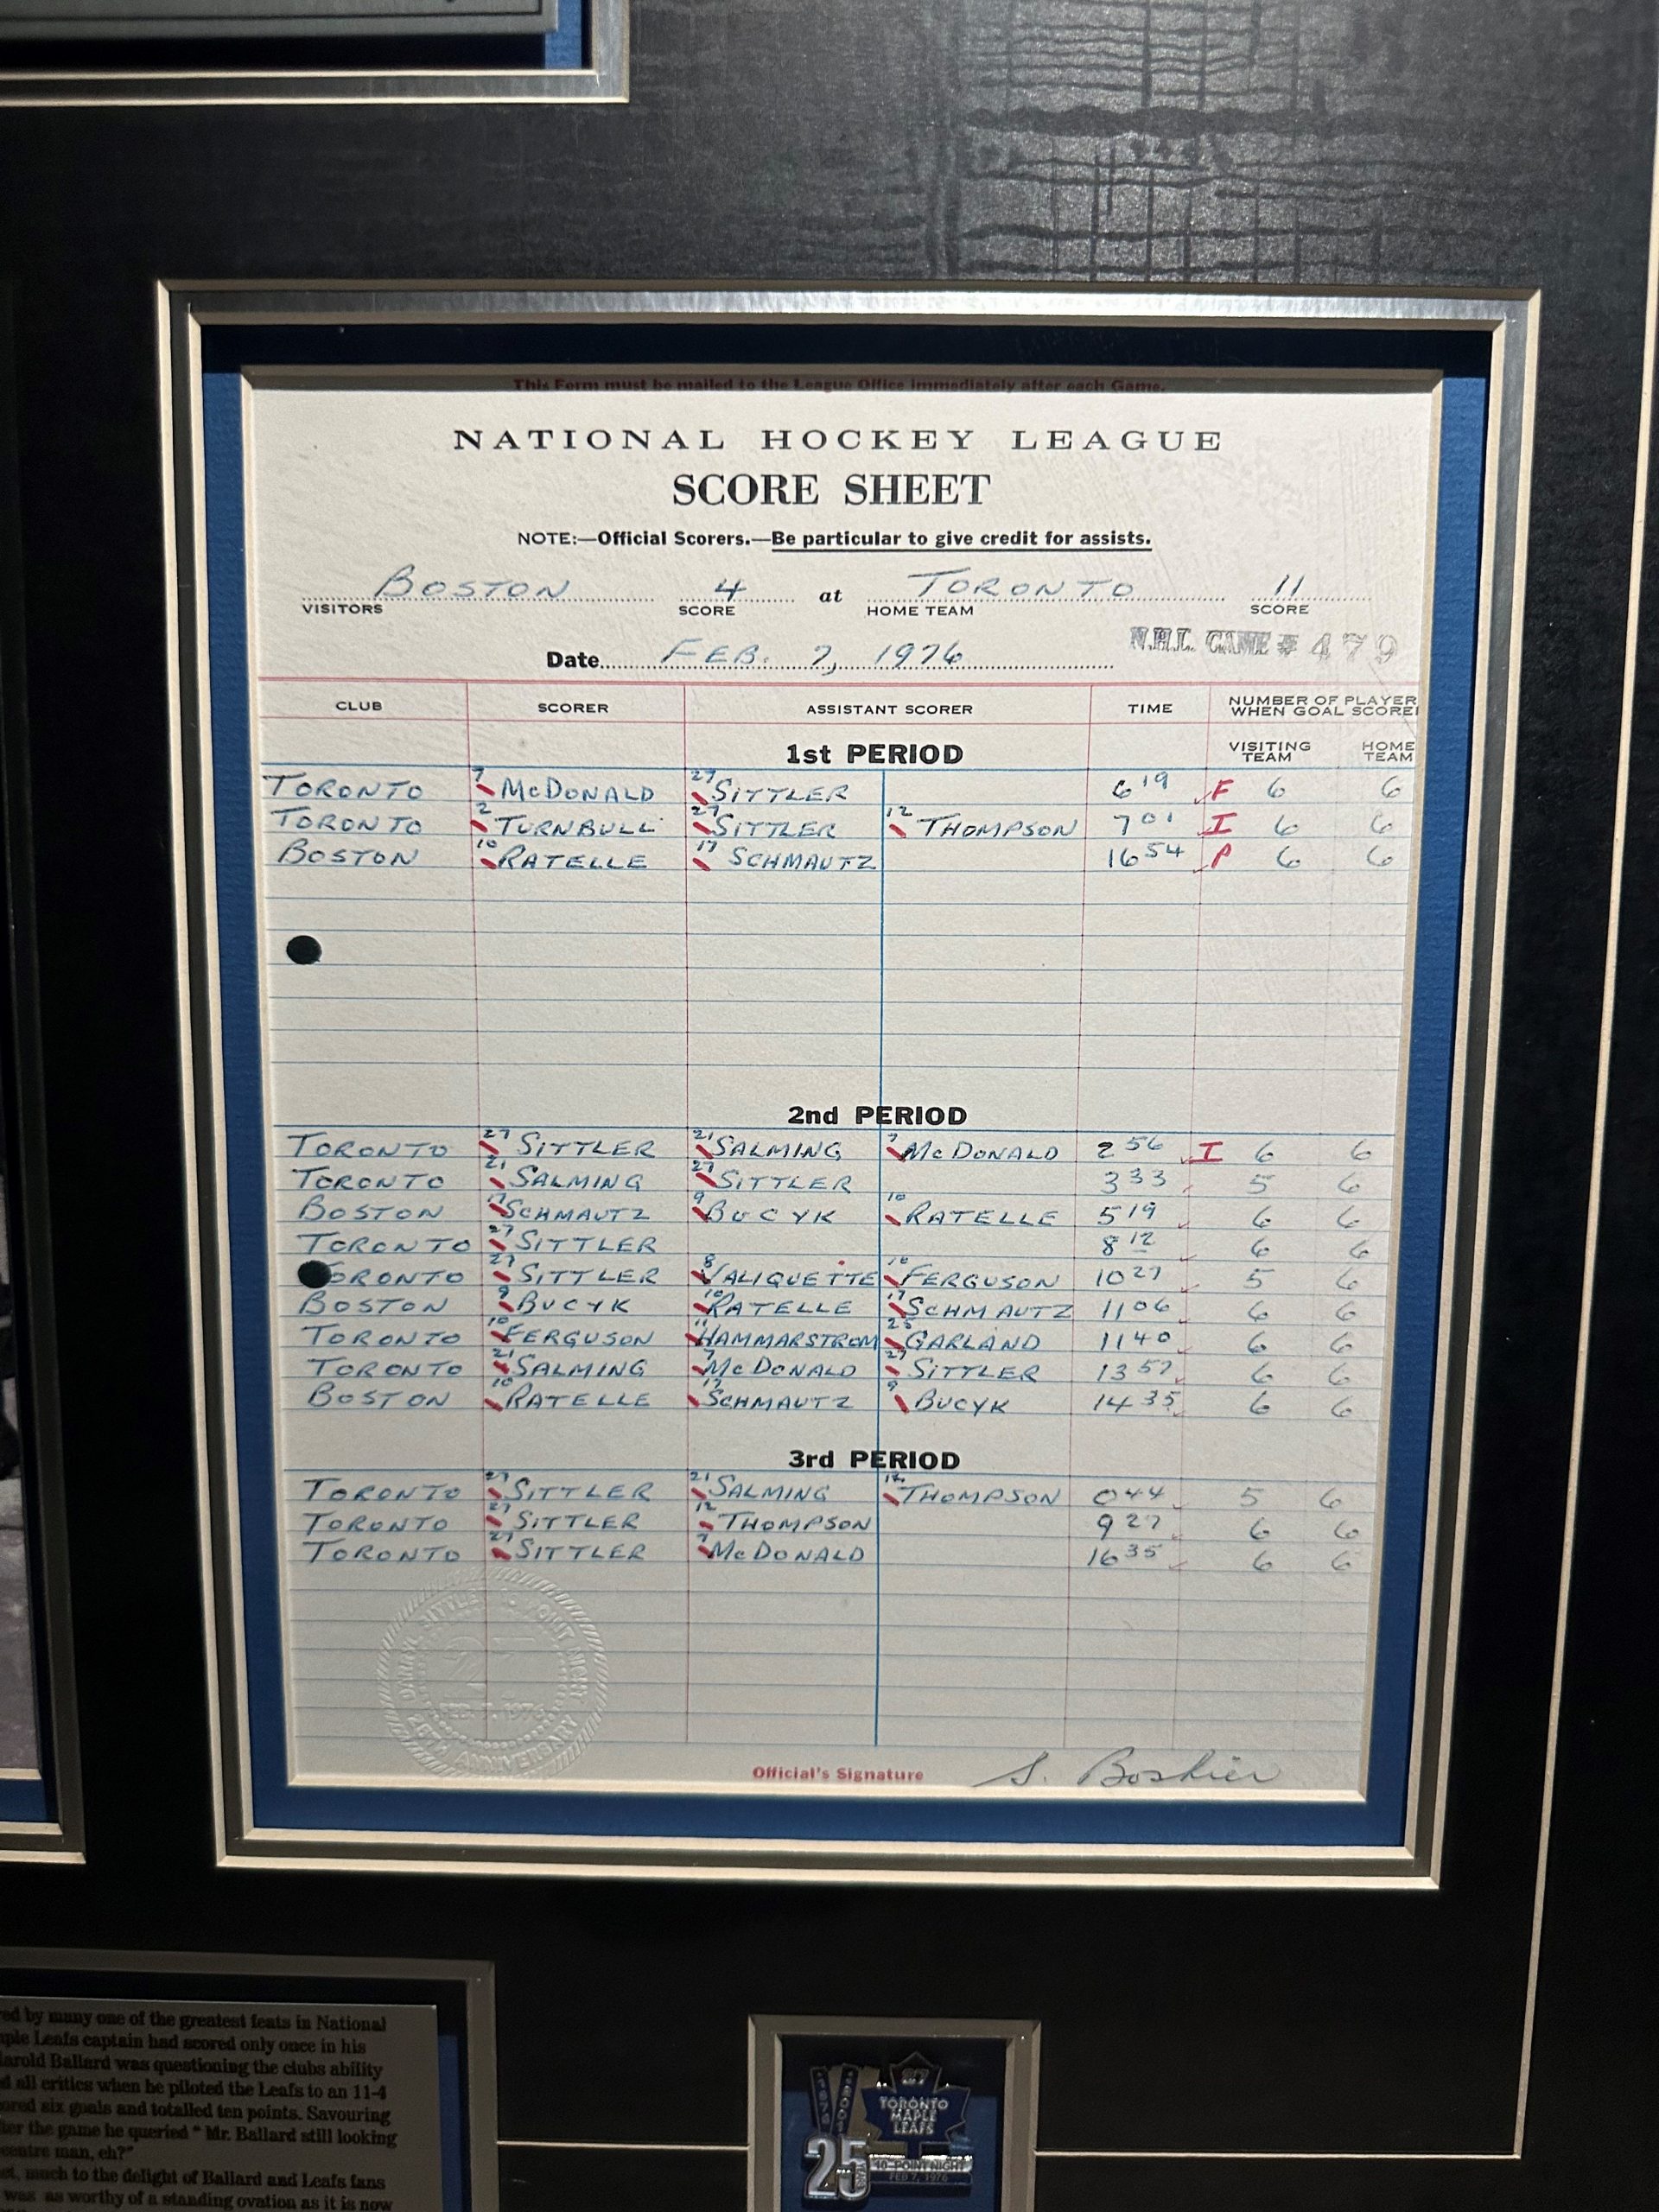 This Form must be mailed to the League Office immediately after each Game.
NATIONAL HOCKEY LEAGUE
SCORE SHEET
NOTE:—Official Scorers.—Be particular to give credit for assists.
BOSTON 4 at TORONTO 11
VISITORS SCORE HOME TEAM SCORE
Date FEB. 7, 1976 N.H.L. GAME # 479
CLUB SCORER ASSISTANT SCORER TIME NUMBER OF PLAYER
WHEN GOAL SCORE
1st PERIOD VISITING TEAM HOME TEAM
TORONTO 7 McDONALD 27 SITTLER 6 19 F 6 6
TORONTO 2 TURNBULL 27 SITTLER 12 THOMPSON 7 01 I 6 6
BOSTON 10 RATELLE 17 SCHMAUTZ 16 54 P 6 6
2nd PERIOD
TORONTO 27 SITTLER 21 SALMING 7 McDONALD 2 56 I 6 6
TORONTO 21 SALMING 27 SITTLER 3 33 5 6
BOSTON 17 SCHMAUTZ 9 BUCYK 10 RATELLE 5 19 6 6
TORONTO 27 SITTLER 8 12 6 6
ORONTO 27 SITTLER 8 VALIQUETTE 10 FERGUSON 10 27 5 6
BOSTON 9 BUCYK 10 RATELLE 17 SCHMAUTZ 11 06 6 6
TORONTO 10 FERGUSON 11 HAMMARSTROM 25 GARLAND 11 40 6 6
TORONTO 21 SALMING 7 McDONALD 27 SITTLER 13 57 6 6
BOSTON 10 RATELLE 17 SCHMAUTZ 9 BUCYK 14 35 6 6
3rd PERIOD
TORONTO 27 SITTLER 21 SALMING 12 THOMPSON 0 44 5 6
TORONTO 27 SITTLER 12 THOMPSON 9 27 6 6
TORONTO 27 SITTLER 7 McDONALD 16 35 6 6
DARRYL SITTLER 10 POINT NIGHT
27
FEB. 7, 1976
25TH ANNIVERSARY
Official's Signature S. Boshier
ed by many one of the greatest feats in National
ple Leafs captain had scored only once in his
arold Ballard was questioning the clubs ability
d all critics when he piloted the Leafs to an 11-4
ored six goals and totalled ten points. Savouring
ter the game he queried " Mr. Ballard still looking
centre man, eh?"
et, much to the delight of Ballard and Leafs fans
was as worthy of a standing ovation as it is now
1976 2001
27
TORONTO
MAPLE
LEAFS
25 YEARS
10-POINT NIGHT
FEB 7, 1976